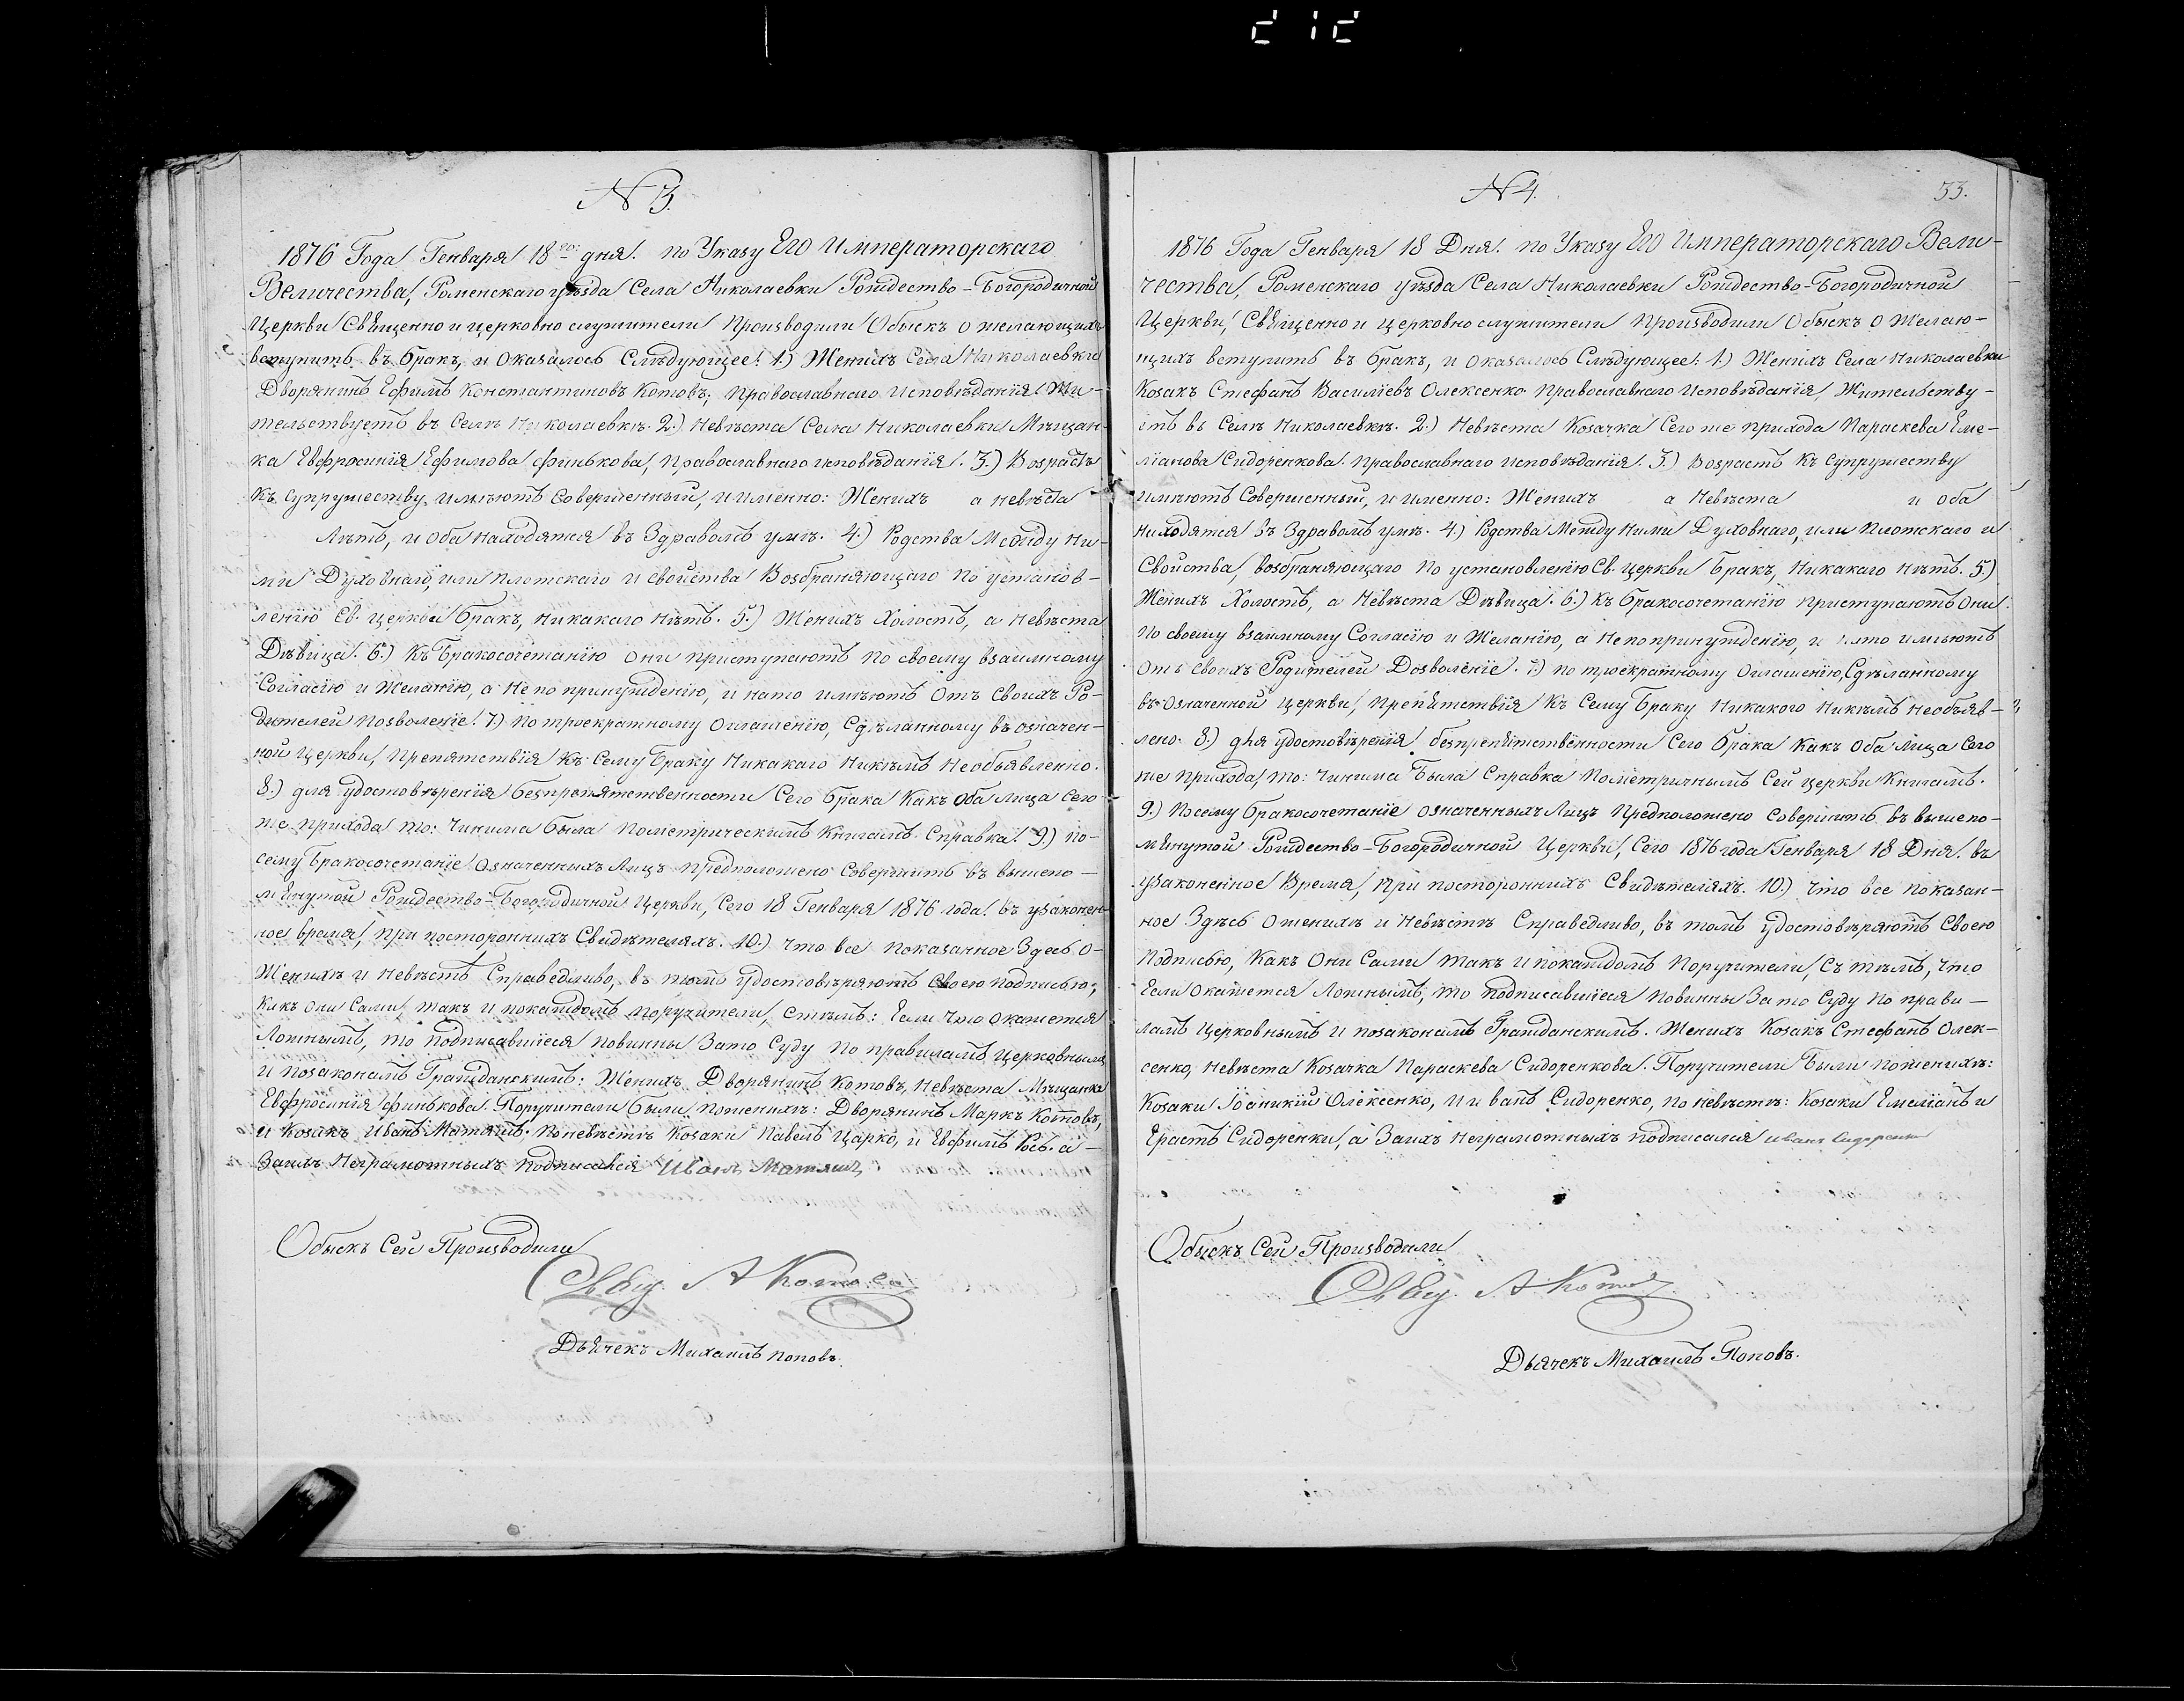 N 3.
1876 Года Генваря 18го дня. по Указу Его Императорскаго
Величества, Роменскаго уѣзда Села Николаевки Рождество-Богородичной
Церкви Священно и церковно служители Производили Обыскъ о желающихъ
вступить въ бракъ, и оказалось Слѣдующее: 1.) Женихъ Села Николаевки
Дворянинъ Ефимъ Константиновъ Котовъ, Православнаго исповѣданія Жи-
тельствуетъ въ Селѣ Николаевкѣ. 2.) Невѣста Села Николаевки Мѣщан-
ка Евфросинія Ефимова Финькова, Православнаго исповѣданія. 3.) Возрастъ
Къ супружеству имѣютъ Совершенный, и именно: Женихъ а невѣста
Лѣтъ, и оба находятся въ Здравомъ умѣ. 4.) Родства Между Ни-
ми Духовнаго, или плотскаго и свойства Возбраняющаго по установ-
ленію Св. церкви бракъ, никакаго нѣтъ. 5.) Женихъ Холостъ, а Невѣста
Дѣвица. 6.) Къ Бракосочетанію они приступаютъ по своему взаимному
Согласію и Желанію, а не по принужденію, и нато имѣютъ Отъ своихъ Ро-
дителей позволеніе. 7.) По троекратному Оглашенію, Сдѣланному въ означен-
ной Церкви, Препятствія Къ Сему Браку Никакаго Никѣмъ Необъявленно.
8.) для удостовѣренія Безпрепятственности Сего брака Какъ оба лица сего
же прихода то: Чинима была Пометрическимъ Книгамъ Справка. 9.) По-
сему Бракосочетаніе Означенныхъ Лицъ предположено Совершить въ вышепо-
мянутой Рождество-Богородичной Церкви, Сего 18 Генваря 1876 года. въ узаконен-
ное время, при постороннихъ Свидѣтеляхъ. 10.) Что все показанное Здесь о-
Женихѣ и Невѣстѣ Справедливо, въ томъ Удостовѣряютъ Своею подписью,
Какъ они Сами, такъ и покаждомъ поручители, стѣмъ: Если что окажется
Ложнымъ, то Подписавшіеся повинны Зато Суду по правиламъ Церковнымъ
и позаконамъ Гражданскимъ: Женихъ Дворянинъ Котовъ, Невѣста Мѣщанка
Евфросинія Финькова. Поручители были Поженихѣ: Дворянинъ Маркъ Котовъ,
и Козакъ Иванъ Матяшъ. Поневѣстѣ Козаки Павелъ Царко, и Евфимъ Рось. а-
Заихъ Неграмотныхъ подписался Иванъ Матяшъ
Обыскъ Сей Производили
Свящ. А Котовъ
Дьячекъ Михаилъ Поповъ.
N 4.
53.
1876 Года Генваря 18 Дня. по Указу Его Императорскаго Вели-
чества, Роменскаго уѣзда Села Николаевки Рождество-Богородичной
Церкви, Священно и церковно служители Производили Обыскъ о Желаю-
щихъ вступить въ бракъ, и оказалось Слѣдующее: 1.) Женихъ Села Николаевки
Козакъ Стефанъ Василіевъ Олексенко Православнаго исповѣданія, Жительству-
етъ въ Селѣ Николаевкѣ. 2.) Невѣста Козачка Сего же прихода Параскева Еме-
ліанова Сидоренкова. Православнаго исповѣданія. 3.) Возрастъ Къ Супружеству
имѣютъ Совершенный, и именно: Женихъ а Невѣста и оба
находятся въ Здравомъ умѣ. 4.) Родства Между Ними Духовнаго, или Плотскаго и
Свойства, возбраняющаго по установленію Св. церкви бракъ, Никакаго нѣтъ. 5.)
Женихъ Холостъ, а Невѣста Дѣвица. 6.) Къ бракосочетанію приступаютъ Они
по своему взаимному Согласію и Желанію, а не по принужденію, и нато имѣютъ
Отъ своихъ Родителей Дозволеніе. 7.) по троекратному Оглашенію, Сдѣланному
въ означенной Церкви, Препятствія Къ Сему Браку Никакого Никѣмъ необъяв-
лено. 8.) для удостовѣренія безпрепятственности Сего брака Какъ оба Лица сего
же прихода, то: Чинима была Справка Пометричнымъ Сей церкви Книгамъ.
9.) Посему бракосочетаніе означенныхъ Лицъ Предположено Совершить въ вышепо-
мянутой Рождество-Богородичной Церкви, Сего 1876 года Генваря 18 Дня. въ
узаконенное Время, при постороннихъ Свидѣтеляхъ. 10.) Что все показан-
ное Здѣсь о женихѣ и Невѣстѣ Справедливо, въ томъ Удостовѣряютъ Своею
Подписью, Какъ Они Сами такъ и покаждомъ Поручители, Съ тѣмъ, Что
Если окажется Ложнымъ, то подписавшіеся повинны За то Суду по прави-
ламъ Церковнымъ и позаконамъ Гражданскимъ. Женихъ Козакъ Стефанъ Олек-
сенко, Невѣста Козачка Параскева Сидоренкова. Поручители были поженихѣ:
Козаки Іоаникій Олексенко, и Иванъ Сидоренко, по невѣстѣ: Козаки Емеліанъ и
Ерастъ Сидоренки, а Заихъ Неграмотныхъ подписался Иванъ Сидоренко
Обыскъ Сей Производили
Свящ. А Котовъ
Дьячекъ Михаилъ Поповъ.